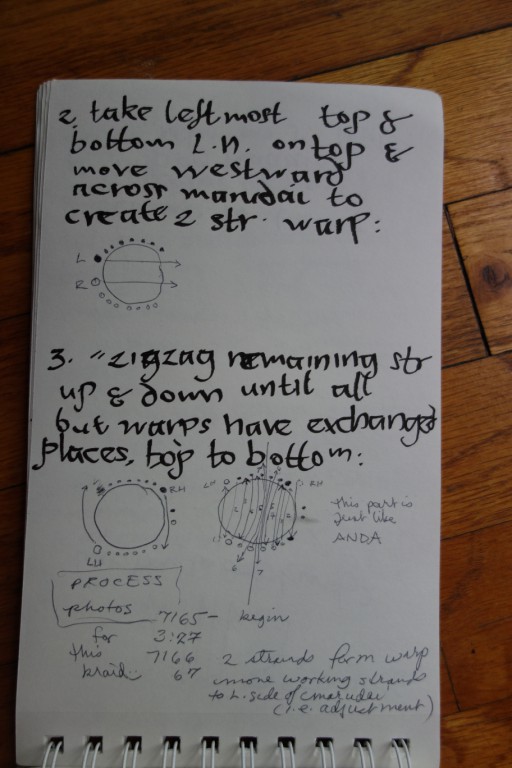 2 take leftmost top &
bottom L.H. on top &
move westward
across marudai to
create 2 str. warp:
L
R
3. "zigzag remaining str
up & down until all
but warps have exchanged
places, top to bottom:
RH
LH
LH
RH
this part is
just like
ANDA
PROCESS
photos 7165-
for 3:27
this 7166
braid: 67
6
7
begin
2 strands form warp
move working strands
to L. side of marudai
(i.e. adjustment)